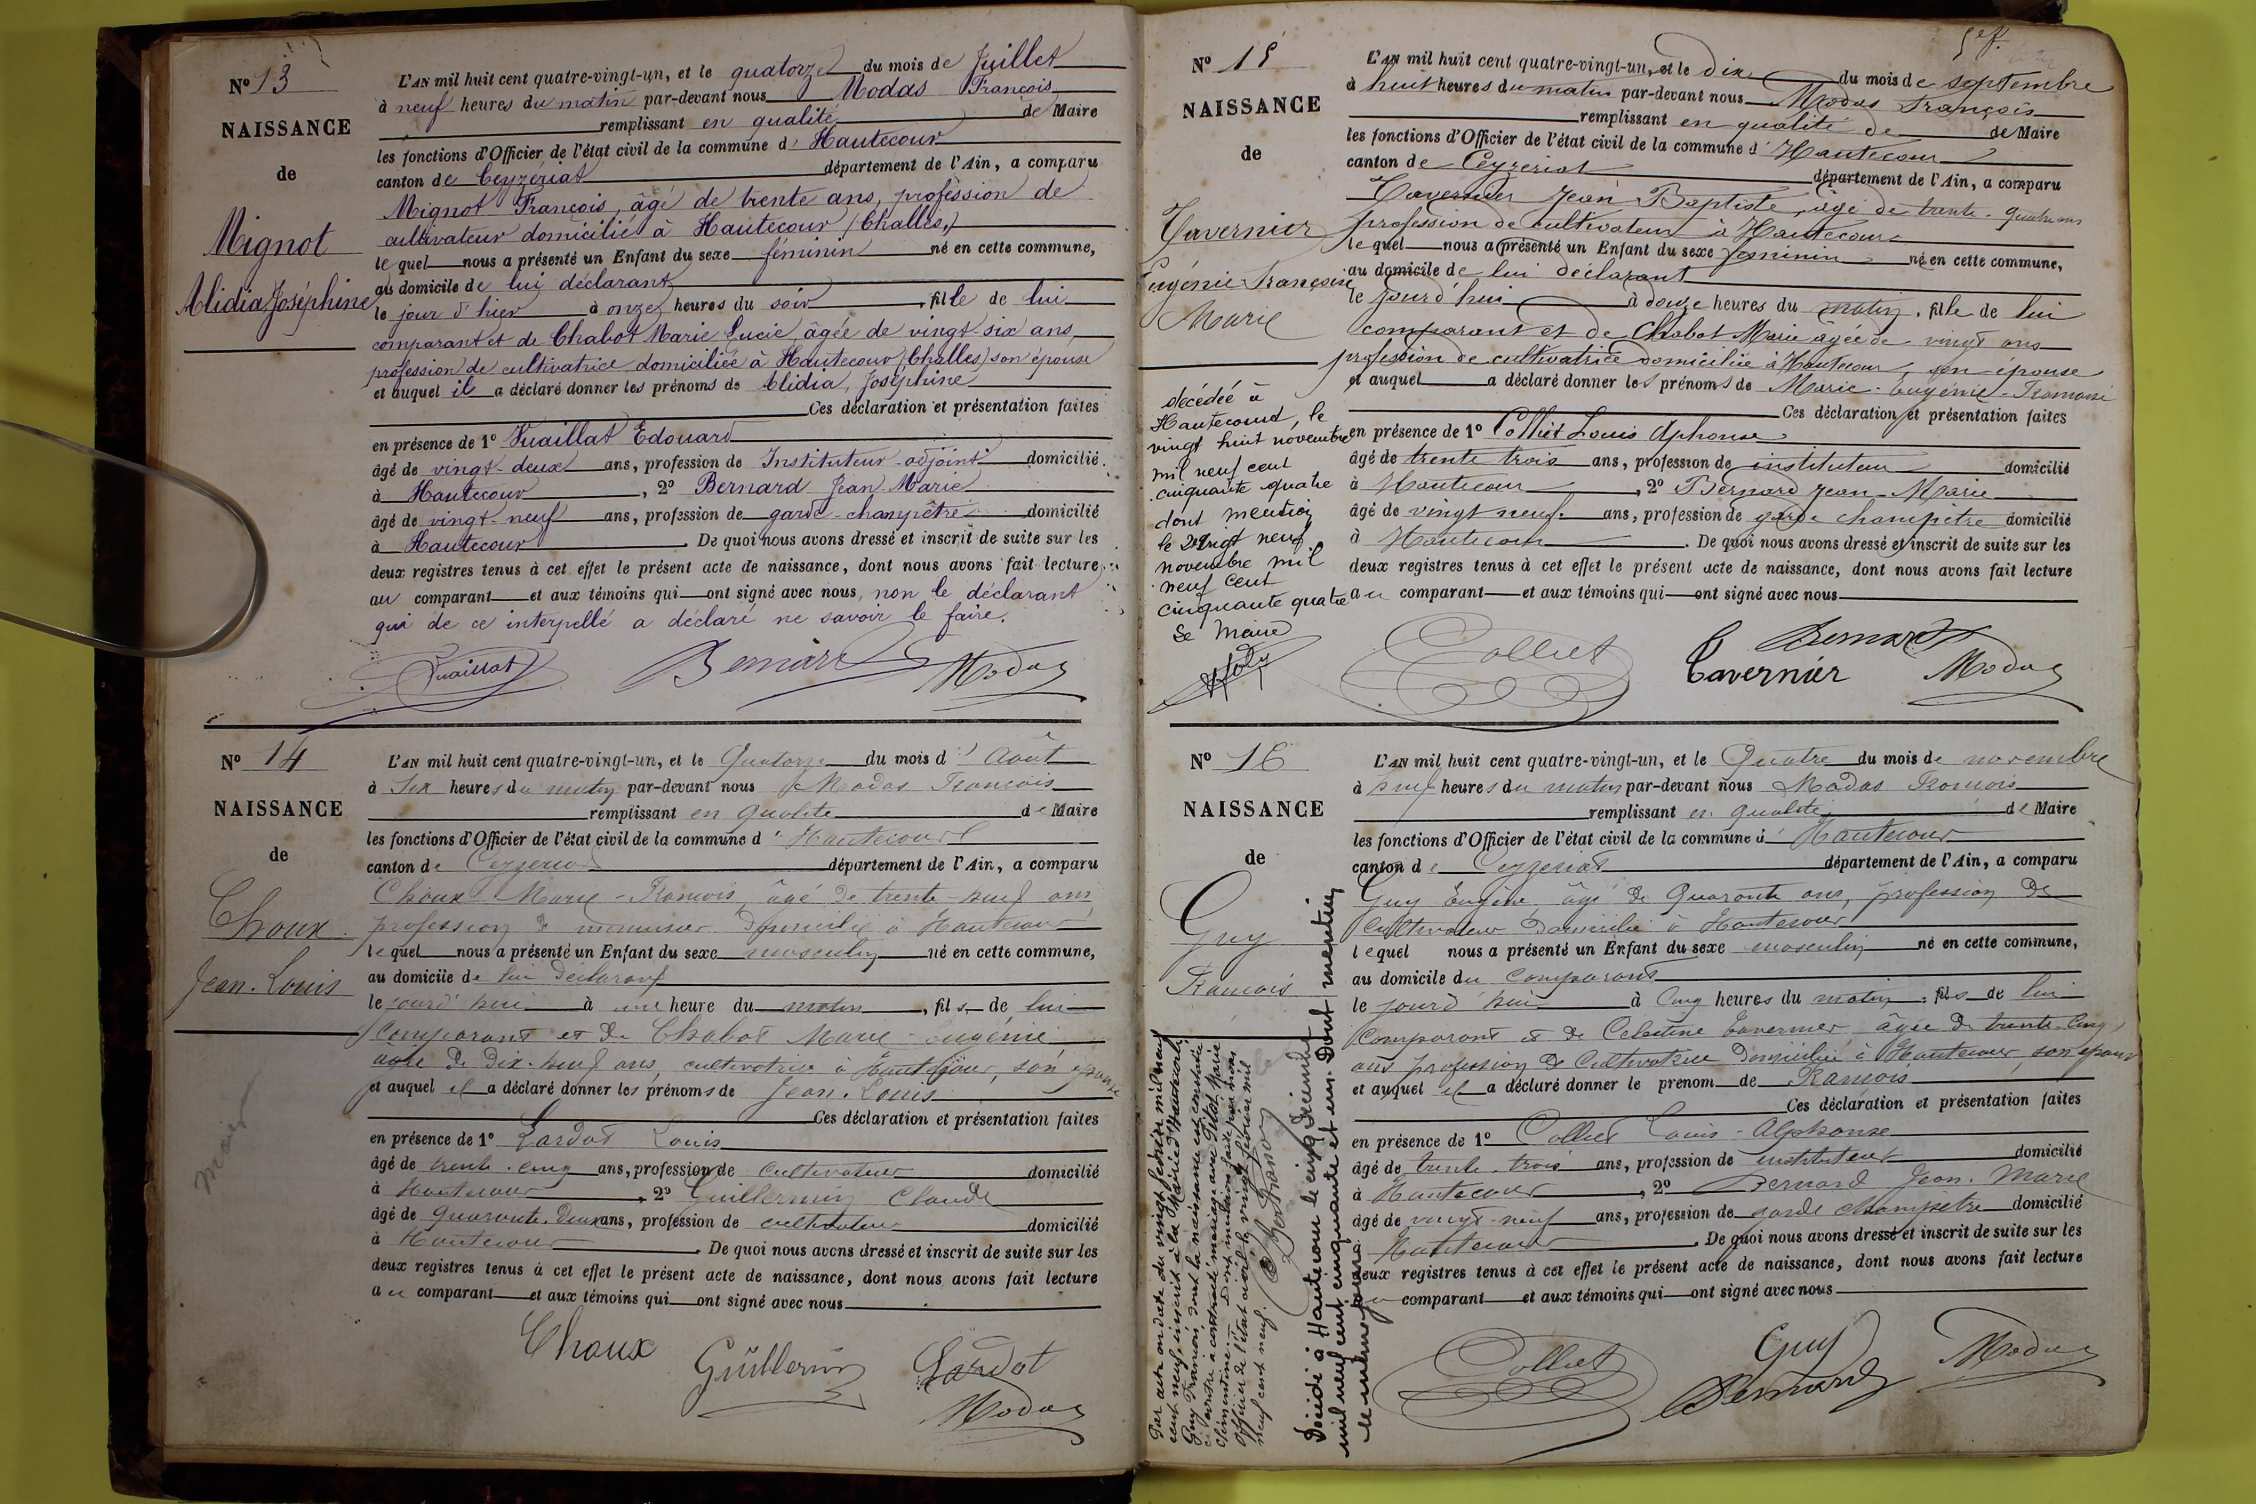 N° 13
NAISSANCE
de
Mignot
Clidia Joséphine
L'AN mil huit cent quatre-vingt-un, et le quatorze du mois de Juillet
à neuf heures du matin par-devant nous Modas François
remplissant en qualité de Maire
les fonctions d'Officier de l'état civil de la commune d' Hautecour
canton de Ceyzeriat département de l'Ain, a comparu
Mignot François, âgé de trente ans, profession de
cultivateur domicilié à Hautecour (Challes)
lequel nous a présenté un Enfant du sexe féminin né en cette commune,
au domicile de lui déclarant
le jour d'hier à onze heures du soir, fille de lui
comparant et de Chabot Marie Lucie, âgée de vingt-six ans,
profession de cultivatrice domiciliée à Hautecour (Challes) son épouse
et auquel il a déclaré donner les prénoms de Clidia, Joséphine
Ces déclaration et présentation faites
en présence de 1° Vuaillat Edouard
âgé de vingt-deux ans, profession de Instituteur-adjoint domicilié
à Hautecour, 2° Bernard Jean Marie
âgé de vingt-neuf ans, profession de garde-champêtre domicilié
à Hautecour. De quoi nous avons dressé et inscrit de suite sur les
deux registres tenus à cet effet le présent acte de naissance, dont nous avons fait lecture
au comparant et aux témoins qui ont signé avec nous, non le déclarant
qui de ce interpellé a déclaré ne savoir le faire.
Vuaillat Bernard Modas
N° 14
NAISSANCE
de
Choux
Jean-Louis
L'AN mil huit cent quatre-vingt-un, et le Quatorze du mois d' Août
à Six heures du matin par-devant nous Modas François
remplissant en qualité de Maire
les fonctions d'Officier de l'état civil de la commune d' Hautecour
canton de Ceyzeriat département de l'Ain, a comparu
Choux Marie-François, âgé de trente-neuf ans
profession de menuisier domicilié à Hautecour
lequel nous a présenté un Enfant du sexe masculin né en cette commune,
au domicile de lui déclarant
le jourd'hui à une heure du matin, fils de lui
comparant et de Chabot Marie-Eugénie
âgée de dix-neuf ans, cultivatrice à Hautecour, son épouse
et auquel il a déclaré donner les prénoms de Jean-Louis
Ces déclaration et présentation faites
en présence de 1° Lardot Louis
âgé de trente-cinq ans, profession de cultivateur domicilié
à Hautecour, 2° Guillermin Claude
âgé de quarante-deux ans, profession de cultivateur domicilié
à Hautecour. De quoi nous avons dressé et inscrit de suite sur les
deux registres tenus à cet effet le présent acte de naissance, dont nous avons fait lecture
au comparant et aux témoins qui ont signé avec nous
Choux Guillermin Lardot
Modas
N° 15
NAISSANCE
de
Tavernier
Eugénie Françoise
Marie
décédée à
Hautecourt, le
vingt huit novembre
mil neuf cent
cinquante quatre
dont mention
le vingt neuf
novembre mil
neuf cent
cinquante quatre
Le Maire
L'AN mil huit cent quatre-vingt-un, et le dix du mois de septembre
à huit heures du matin par-devant nous Modas François
remplissant en qualité de de Maire
les fonctions d'Officier de l'état civil de la commune d' Hautecour
canton de Ceyzeriat département de l'Ain, a comparu
Tavernier Jean Baptiste, âgé de trente-quatre ans
profession de cultivateur à Hautecour
lequel nous a présenté un Enfant du sexe féminin né en cette commune,
au domicile de lui déclarant
le jourd'hui à douze heures du matin, fille de lui
comparant et de Chabot Marie âgée de vingt ans
profession de cultivatrice domiciliée à Hautecour, son épouse
et auquel a déclaré donner les prénoms de Marie-Eugénie-Françoise
Ces déclaration et présentation faites
en présence de 1° Colliet Louis Alphonse
âgé de trente trois ans, profession de instituteur domicilié
à Hautecour, 2° Bernard Jean-Marie
âgé de vingt neuf ans, profession de garde champêtre domicilié
à Hautecour. De quoi nous avons dressé et inscrit de suite sur les
deux registres tenus à cet effet le présent acte de naissance, dont nous avons fait lecture
au comparant et aux témoins qui ont signé avec nous
Colliet Tavernier Bernard Modas
N° 16
NAISSANCE
de
Guy
François
Par acte en date du vingt février mil neuf
cent neuf, inscrit à la Mairie d'Hautecourt
Guy François dont la naissance est constatée
ci-contre a contracté mariage avec Pélot Marie
Clémentine. Dont mention faite par nous
officier de l'état civil le vingt février mil
neuf cent neuf.
Décédé à Hautecour le cinq décembre
mil neuf cent cinquante et un. Dont mention
le même jour.
L'AN mil huit cent quatre-vingt-un, et le Quatre du mois de novembre
à neuf heures du matin par-devant nous Modas François
remplissant en qualité de Maire
les fonctions d'Officier de l'état civil de la commune d' Hautecour
canton de Ceyzeriat département de l'Ain, a comparu
Guy Eugène âgé de Quarante ans, profession de
Cultivateur domicilié à Hautecour
lequel nous a présenté un Enfant du sexe masculin né en cette commune,
au domicile du comparant
le jourd'hui à cinq heures du matin, fils de lui
comparant et de Célestine Tavernier âgée de trente-cinq
ans profession de Cultivatrice domiciliée à Hautecour, son épouse
et auquel il a déclaré donner le prénom de François
Ces déclaration et présentation faites
en présence de 1° Colliet Louis-Alphonse
âgé de trente-trois ans, profession de instituteur domicilié
à Hautecour, 2° Bernard Jean-Marie
âgé de vingt-neuf ans, profession de garde champêtre domicilié
à Hautecour. De quoi nous avons dressé et inscrit de suite sur les
deux registres tenus à cet effet le présent acte de naissance, dont nous avons fait lecture
au comparant et aux témoins qui ont signé avec nous
Colliet Guy Bernard Modas